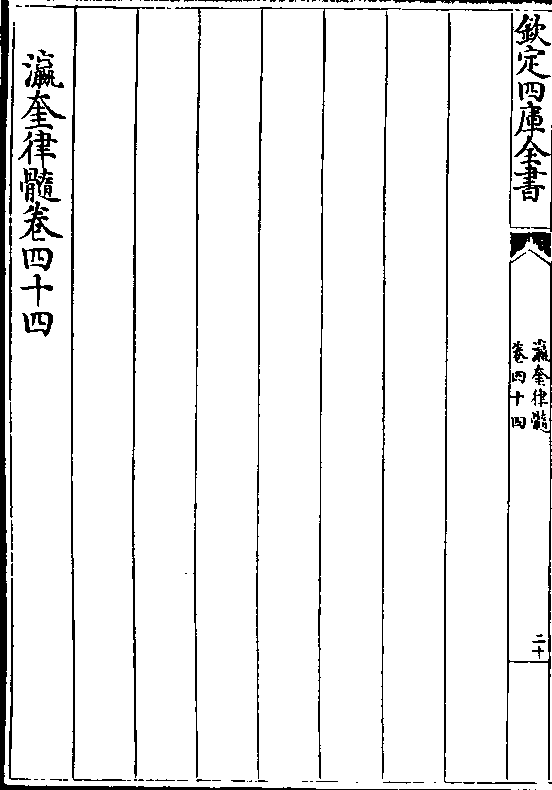 欽定四庫全書
瀛奎律髓
卷四十四
二十
瀛奎律髓卷四十四